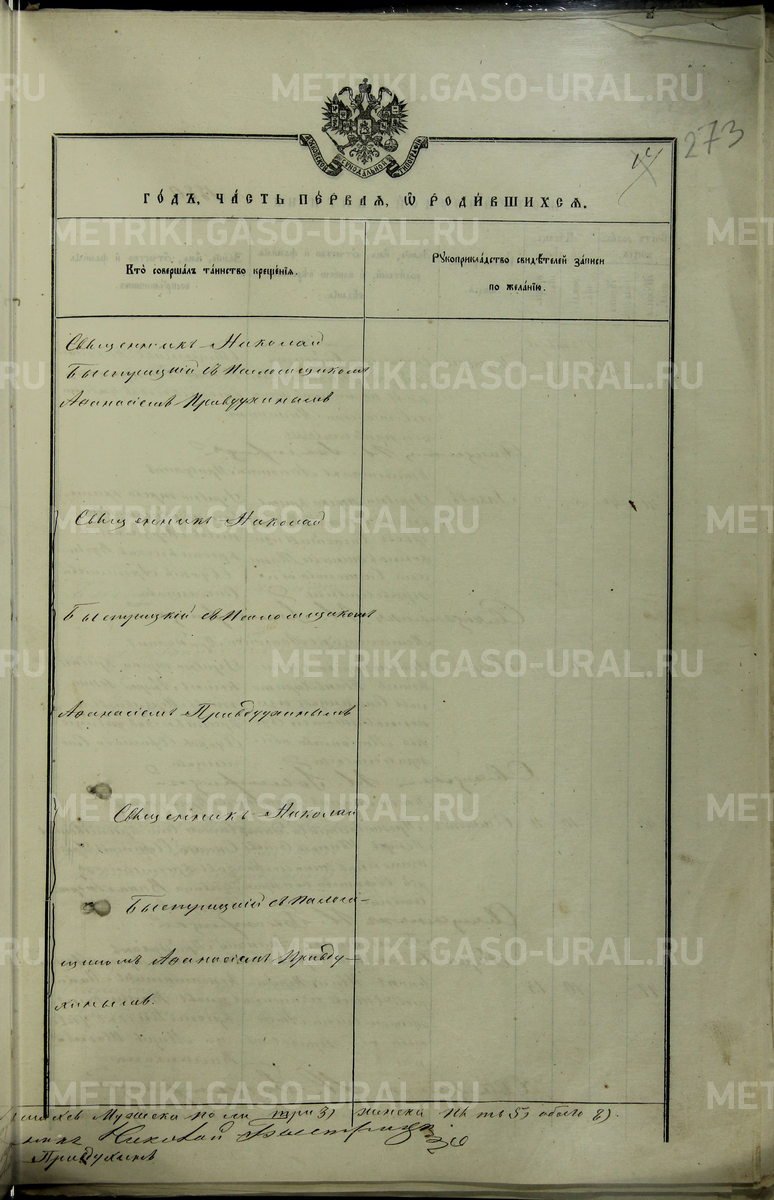 273
ГО́ДЪ, ЧА́СТЬ ПЕ́РВАѦ, Ѽ РОДИ́ВШИХСѦ.
Кто̀ соверша́лъ та́инство креще́нїѧ.
Рꙋкоприкла́дство свидѣ́телей за́писи
по жела́нїю.
Священникъ Николай
Быстрицкій съ Псаломщикомъ
Афанасіемъ Правдухинымъ
Священникъ Николай
Быстрицкій съ Псаломщикомъ
Афанасіемъ Правдухинымъ
Священникъ Николай
Быстрицкій съ Псалом-
щикомъ Афанасіемъ Правду-
хинымъ.
Мужеска пола три 3) женска пять 5) обоего 8).
Николай Быстрицкій
Правдухинъ
METRIKI.GASO-URAL.RU